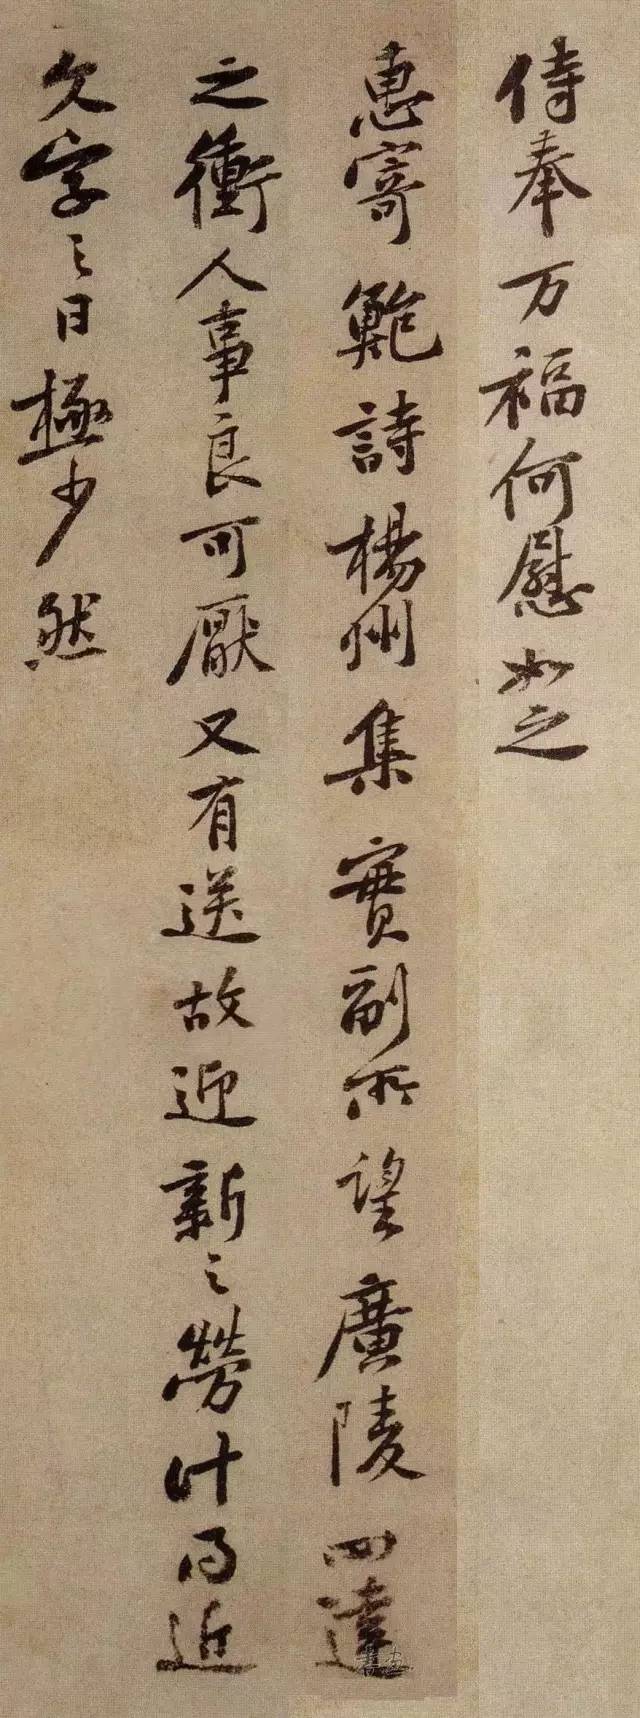 侍奉万福何慰如之
惠寄鮑詩楊州集實副所望廣陵四達
之衝人事良可厭又有送故迎新之勞計得近
文字之日極少然